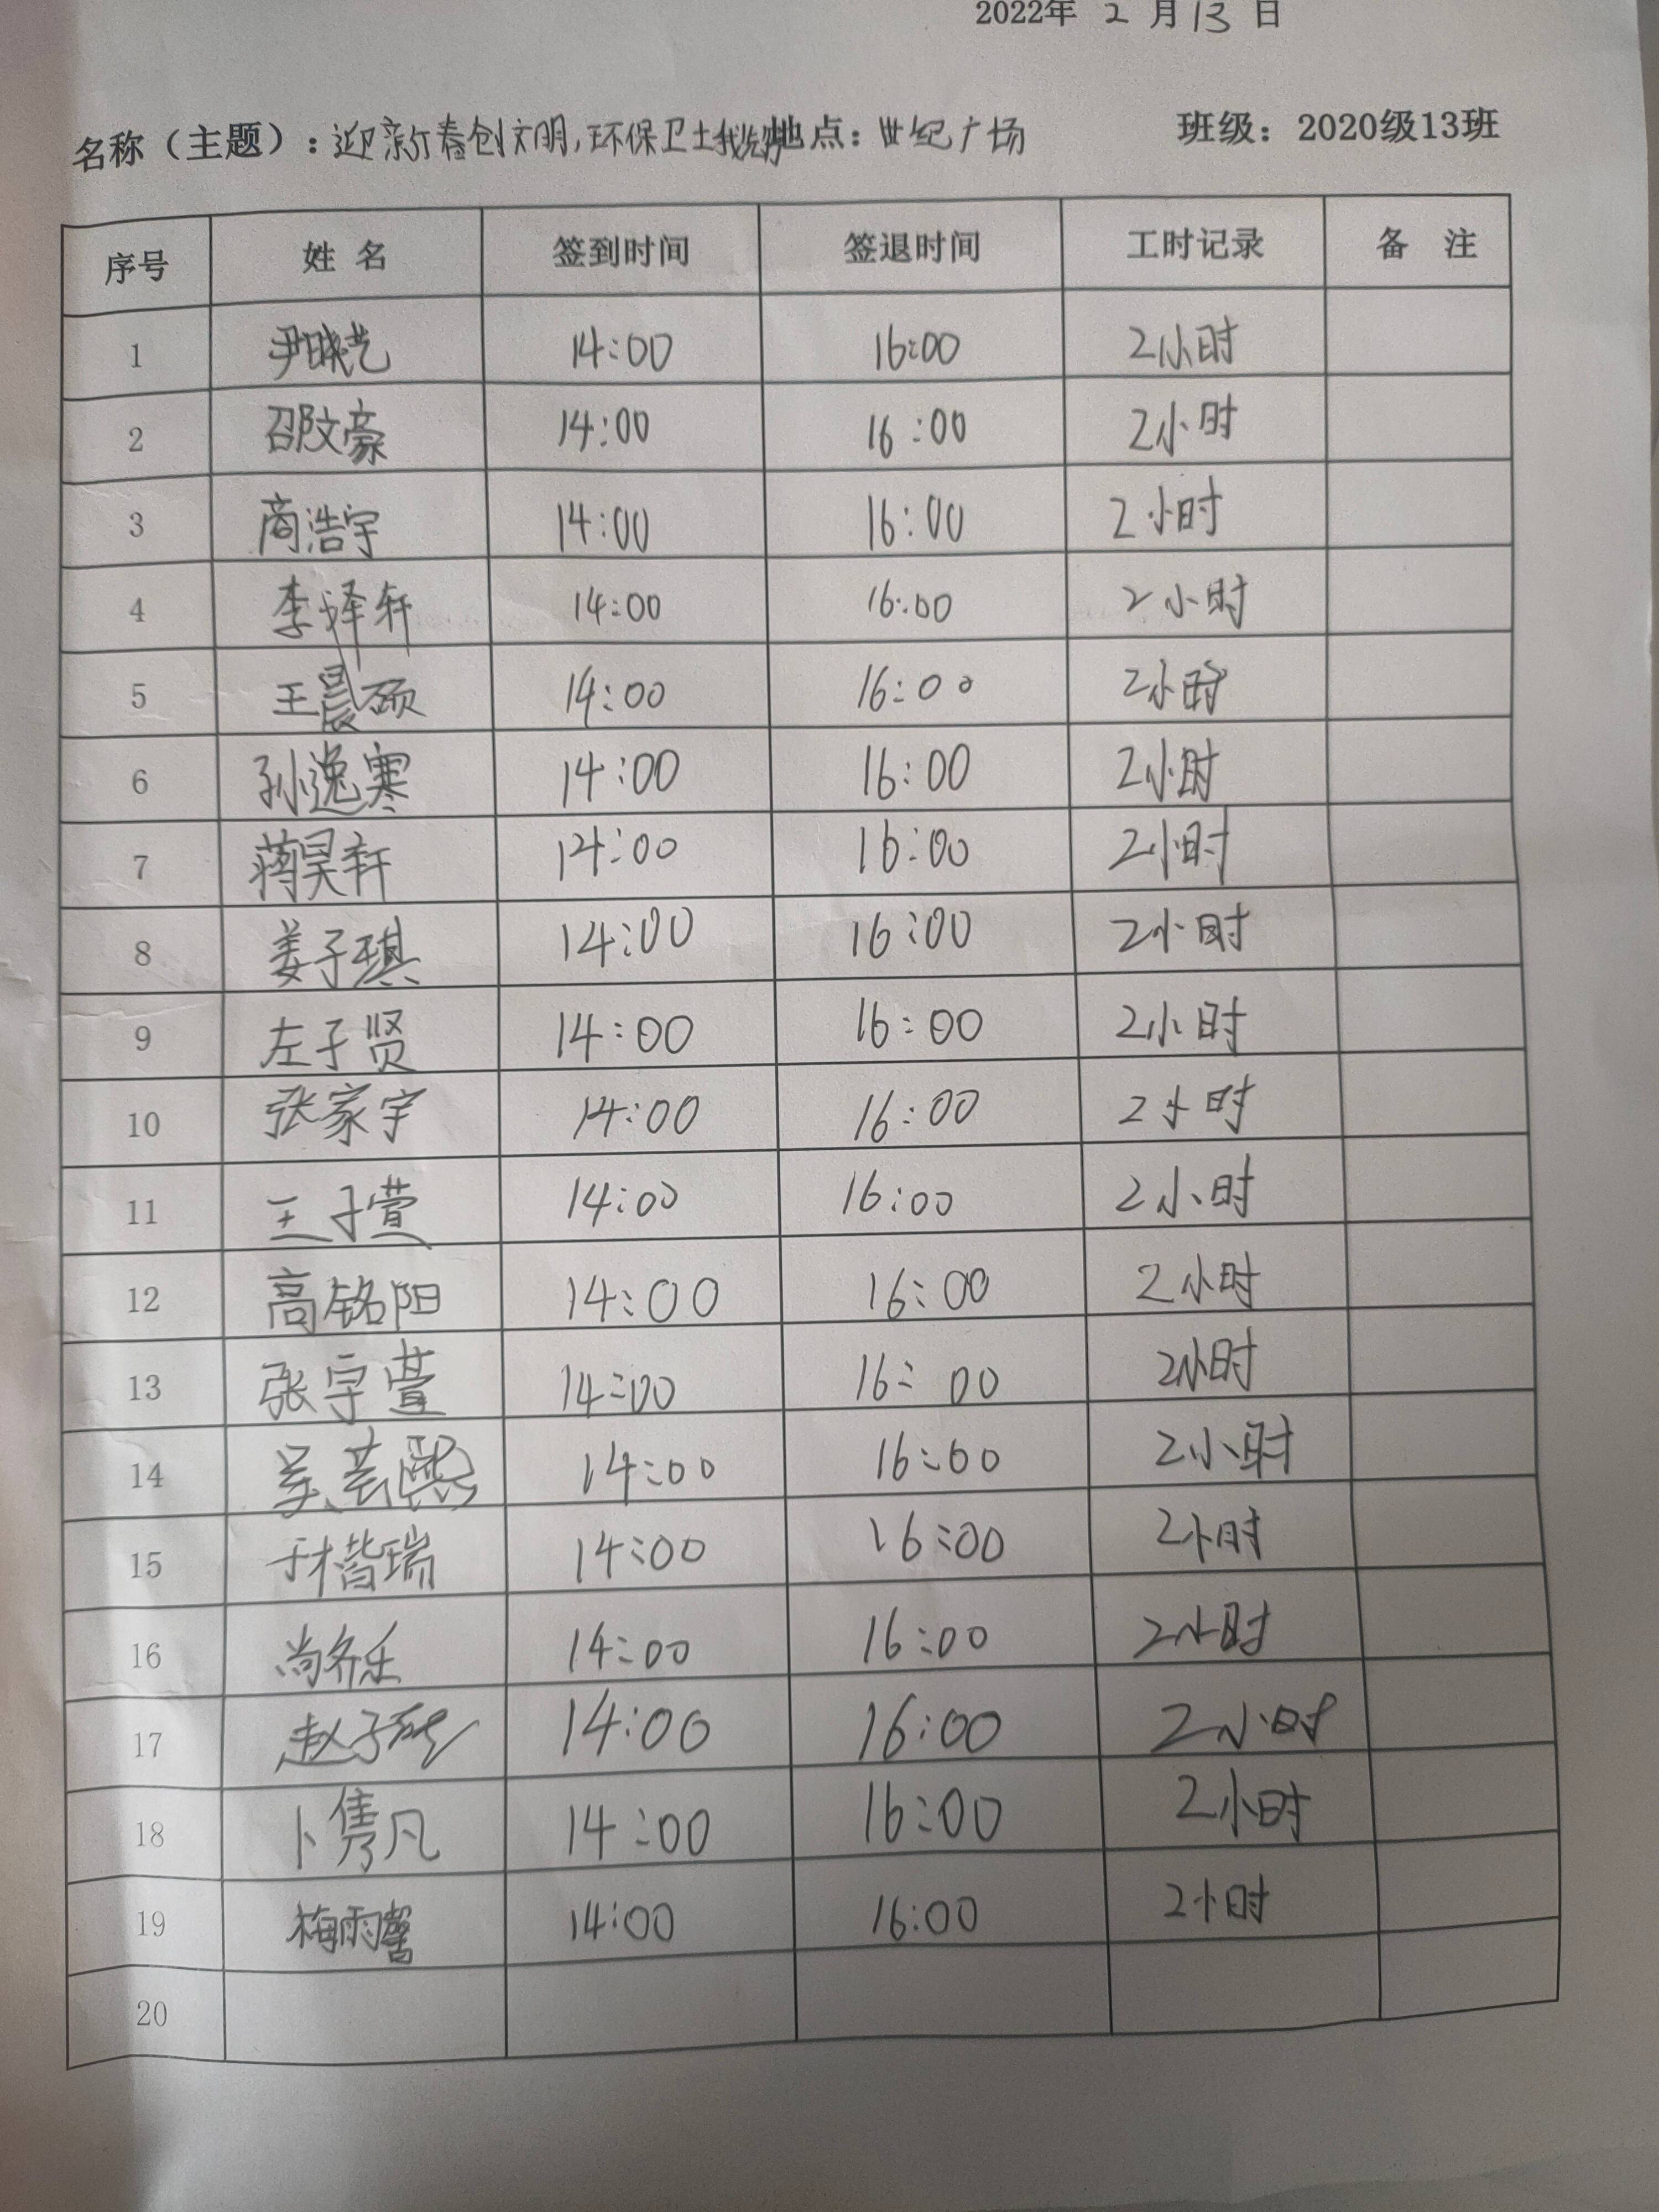 2022年 2 月 13 日
名称（主题）：迎新春创文明,环保卫士我先行 地点：世纪广场 班级：2020级13班
序号 姓名 签到时间 签退时间 工时记录 备注
1 尹晓艺 14:00 16:00 2小时
2 邵文豪 14:00 16:00 2小时
3 商浩宇 14:00 16:00 2小时
4 李泽轩 14:00 16:00 2小时
5 王晨硕 14:00 16:00 2小时
6 孙逸寒 14:00 16:00 2小时
7 蒋昊轩 14:00 16:00 2小时
8 姜子琪 14:00 16:00 2小时
9 左子贤 14:00 16:00 2小时
10 张家宇 14:00 16:00 2小时
11 王子萱 14:00 16:00 2小时
12 高铭阳 14:00 16:00 2小时
13 张宇萱 14:00 16:00 2小时
14 吴芸熙 14:00 16:00 2小时
15 于楷瑞 14:00 16:00 2小时
16 尚乔乐 14:00 16:00 2小时
17 赵子 14:00 16:00 2小时
18 卜隽凡 14:00 16:00 2小时
19 梅雨馨 14:00 16:00 2小时
20